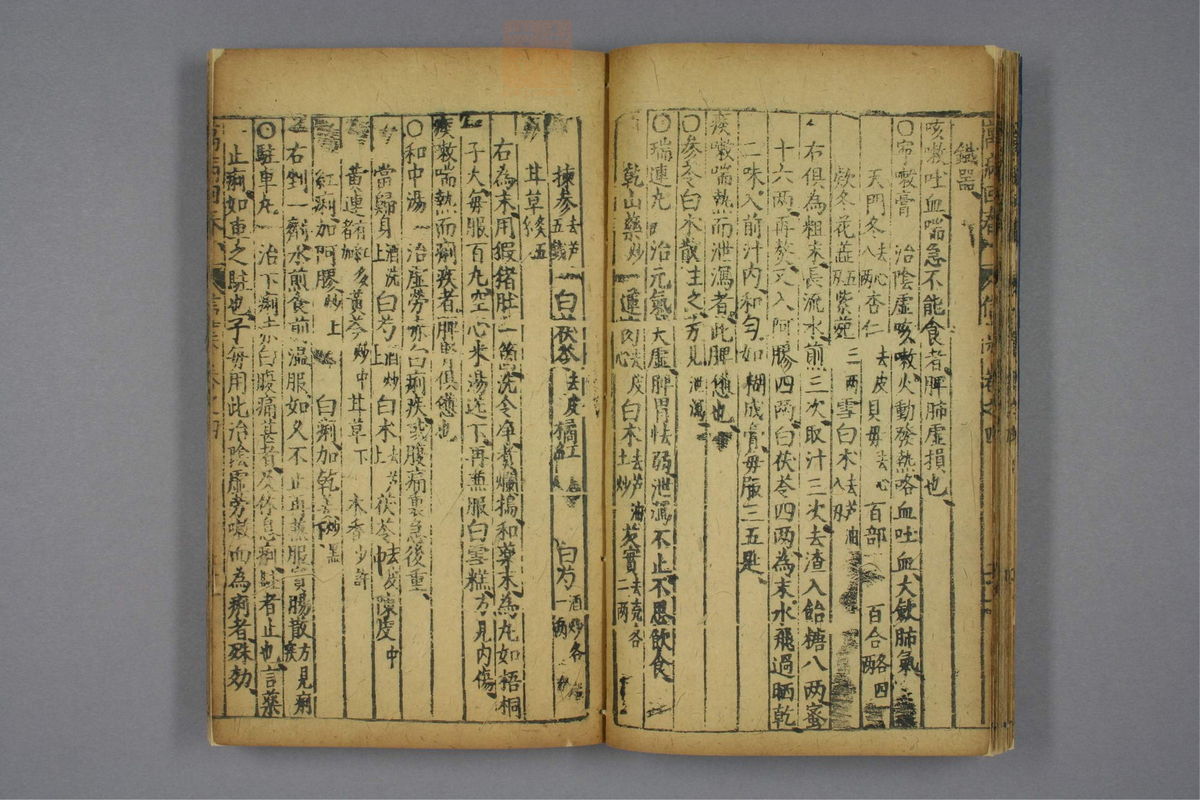 鐵器
咳嗽吐血喘急不能食者脾肺虛損也
〇寧嗽膏 治陰虛咳嗽火動發熱咯血吐血大敛肺氣
天門冬去心八兩杏仁去皮貝母去心百部 百合各四兩
款冬花蕋五兩紫菀三兩雪白木八兩去芦油
右俱為粗末長流水煎三次取汁三次去渣入飴糖八兩蜜
十六兩再熬又入阿膠四兩白茯苓四兩為末水飛過晒乾
二味入前汁內和勻如糊成膏每服三五匙
痰嗽喘熱而泄瀉者此脾憊也
〇參苓白木散主之方見泄瀉
〇瑞連丸 治元氣大虛脾胃怯弱泄瀉不止不思飲食
乾山藥炒 蓮肉去皮心白木去芦油土炒芡實去壳各二兩
揀參去芦五錢 白茯苓去皮橘紅 白芍酒炒各一兩
甘草炙五
右為末用猳猪肚一箇洗令净煮爛搗和藥末為丸如梧桐
子大每服百丸空心米湯送下再兼服白雪糕方見內傷
痰嗽喘熱而痢疾者脾胃俱憊也
〇和中湯 治虛勞赤白痢疾或腹痛裏急後重
當歸身酒洗上白芍酒炒上白木去芦上茯苓去皮中陳皮中
黃連 黃芩炒中甘草下木香少許
紅痢加阿膠炒上 白痢加乾姜炒黑下
右剉一劑水煎食前溫服如久不止再兼服實腸散方見痢疾
〇駐車丸 治下痢赤白腹痛甚者及休息痢駐者止也言藥
止痢如車之駐也予每用此治陰虛勞嗽血為痢者殊効